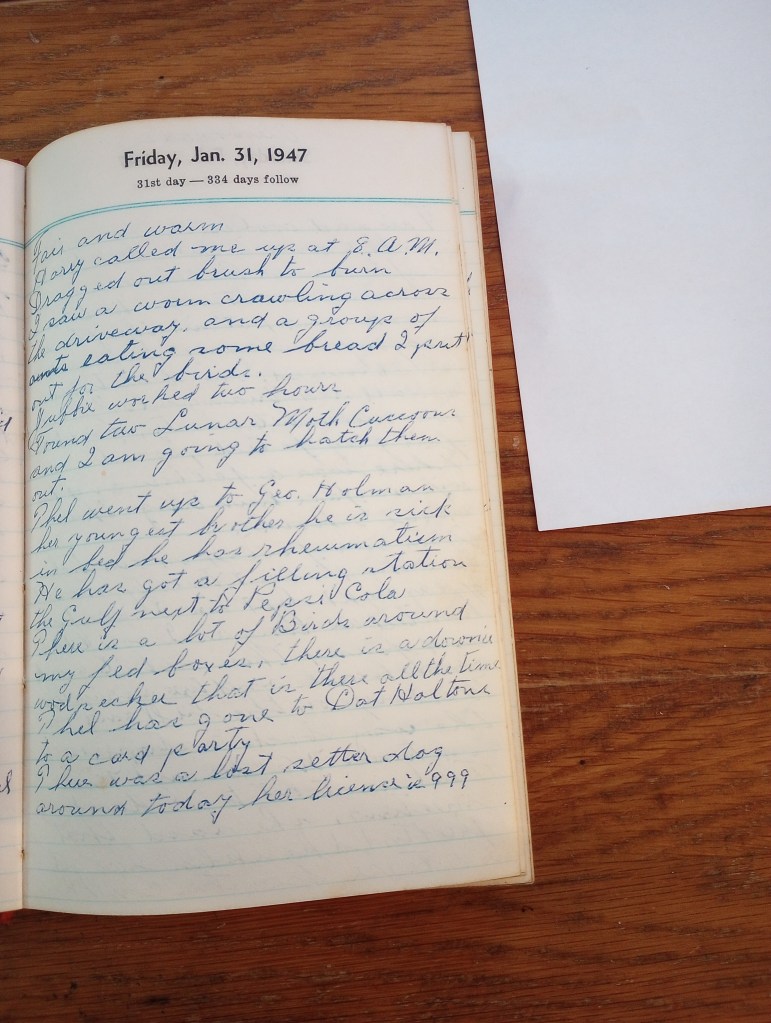 Friday, Jan. 31, 1947
31st day — 334 days follow
Fair and warm
Harry called me up at 8. A.M.
Dragged out brush to burn
I saw a worm crawling across
the driveway, and a group of
ants eating some bread I put
out for the birds.
worked two hours
Found two Lunar Moth Cuccoons
and I am going to hatch them
out.
Thel went up to Geo. Holman
her youngest brother he is sick
in bed he has rheumatism
He has got a filling station
the Gulf next to Pepsi Cola
There is a lot of Birds around
my fed boxes, there is a downie
wodpecker that is there all the time
Thel has gone to Dot Haltons
to a card party
Thee was a lost setter dog
around today her licens is 999